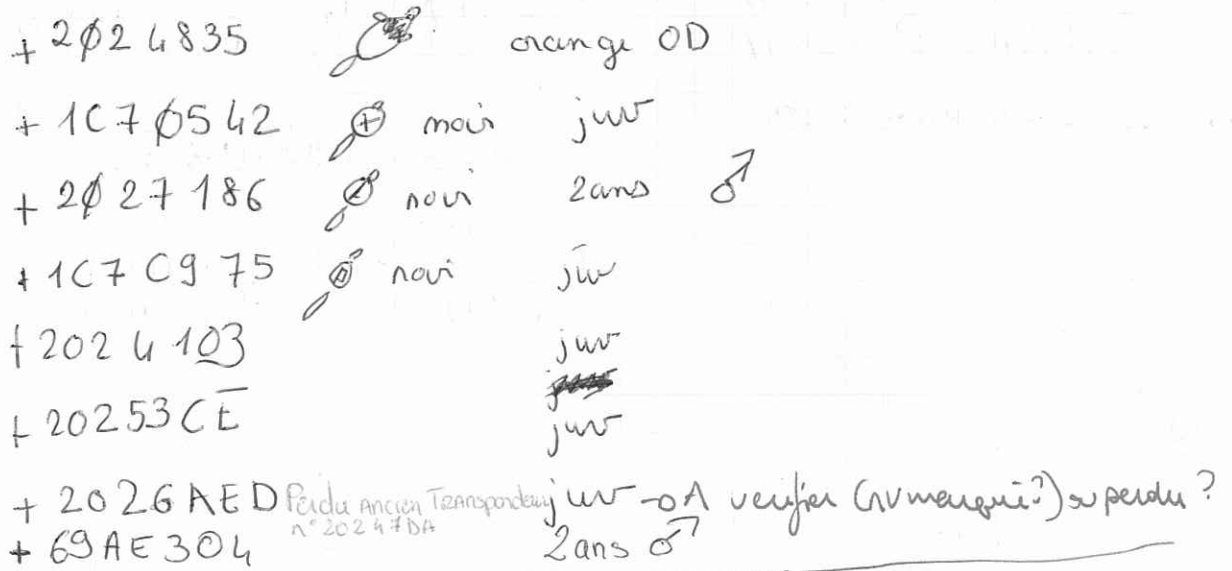 + 2024835 orange OD
+ 1C70542 noir juv
+ 2027186 noir 2ans ♂
+ 1C7C975 noir juv
+ 2024103 juv
+ 20253CE juv
+ 2026AED Perdu Ancien Transpondeur juv → A verifier (nv marqué?) si perdu ?
n° 20247DA
+ 69AE304 2ans ♂